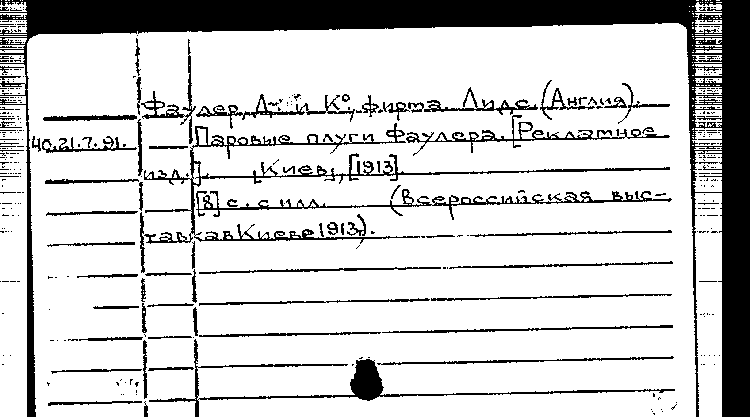 Фаулер, Дж. и К°, фирма. Лидс (Англия).
40.21.7.91. Паровые плуги Фаулера. [Рекламное
изд.]. [Киев], [1913].
[8] с. с илл. (Всероссийская выс-
тавка в Киеве 1913).